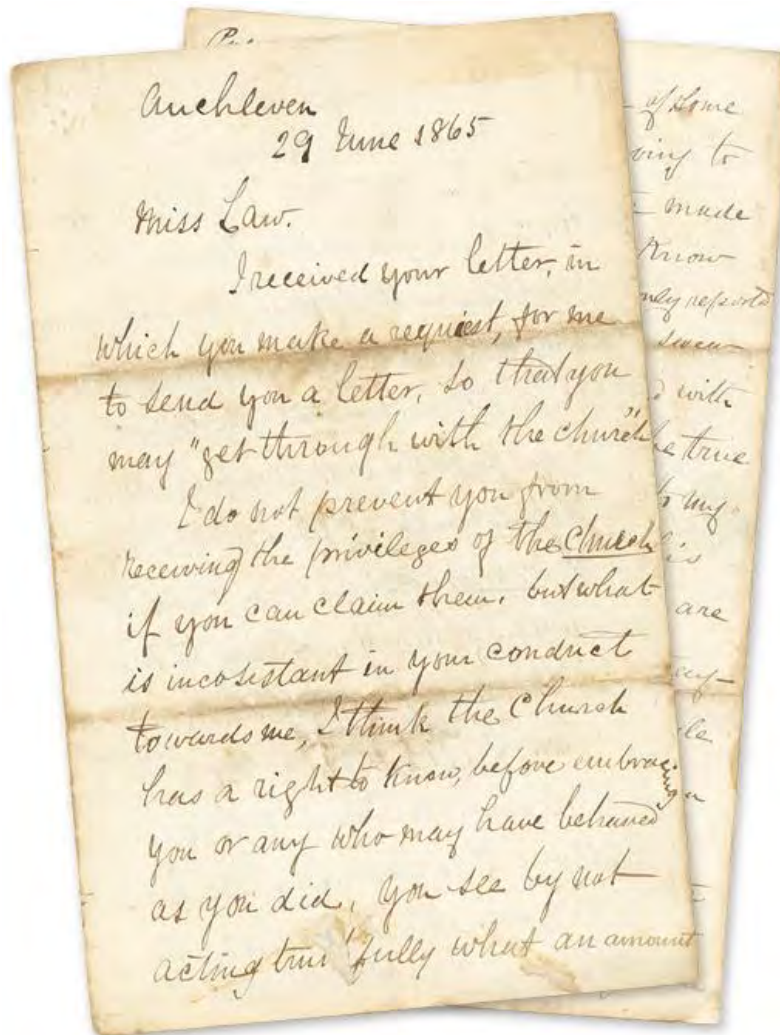 Auchleven
29 June 1865
Miss Law.
I received your letter, in
which you make a request, for me
to send you a letter, so that you
may "get through with the church"
I do not prevent you from
receiving the privileges of the church
if you can claim them, but what
is incosistant in your conduct
towards me, I think the Church
has a right to know, before embracing
you or any who may have behaved
as you did, you see by not
acting truthfully what an amount
of some
ving to
made
Know
only reported
swear
with
he true
to my
is
are